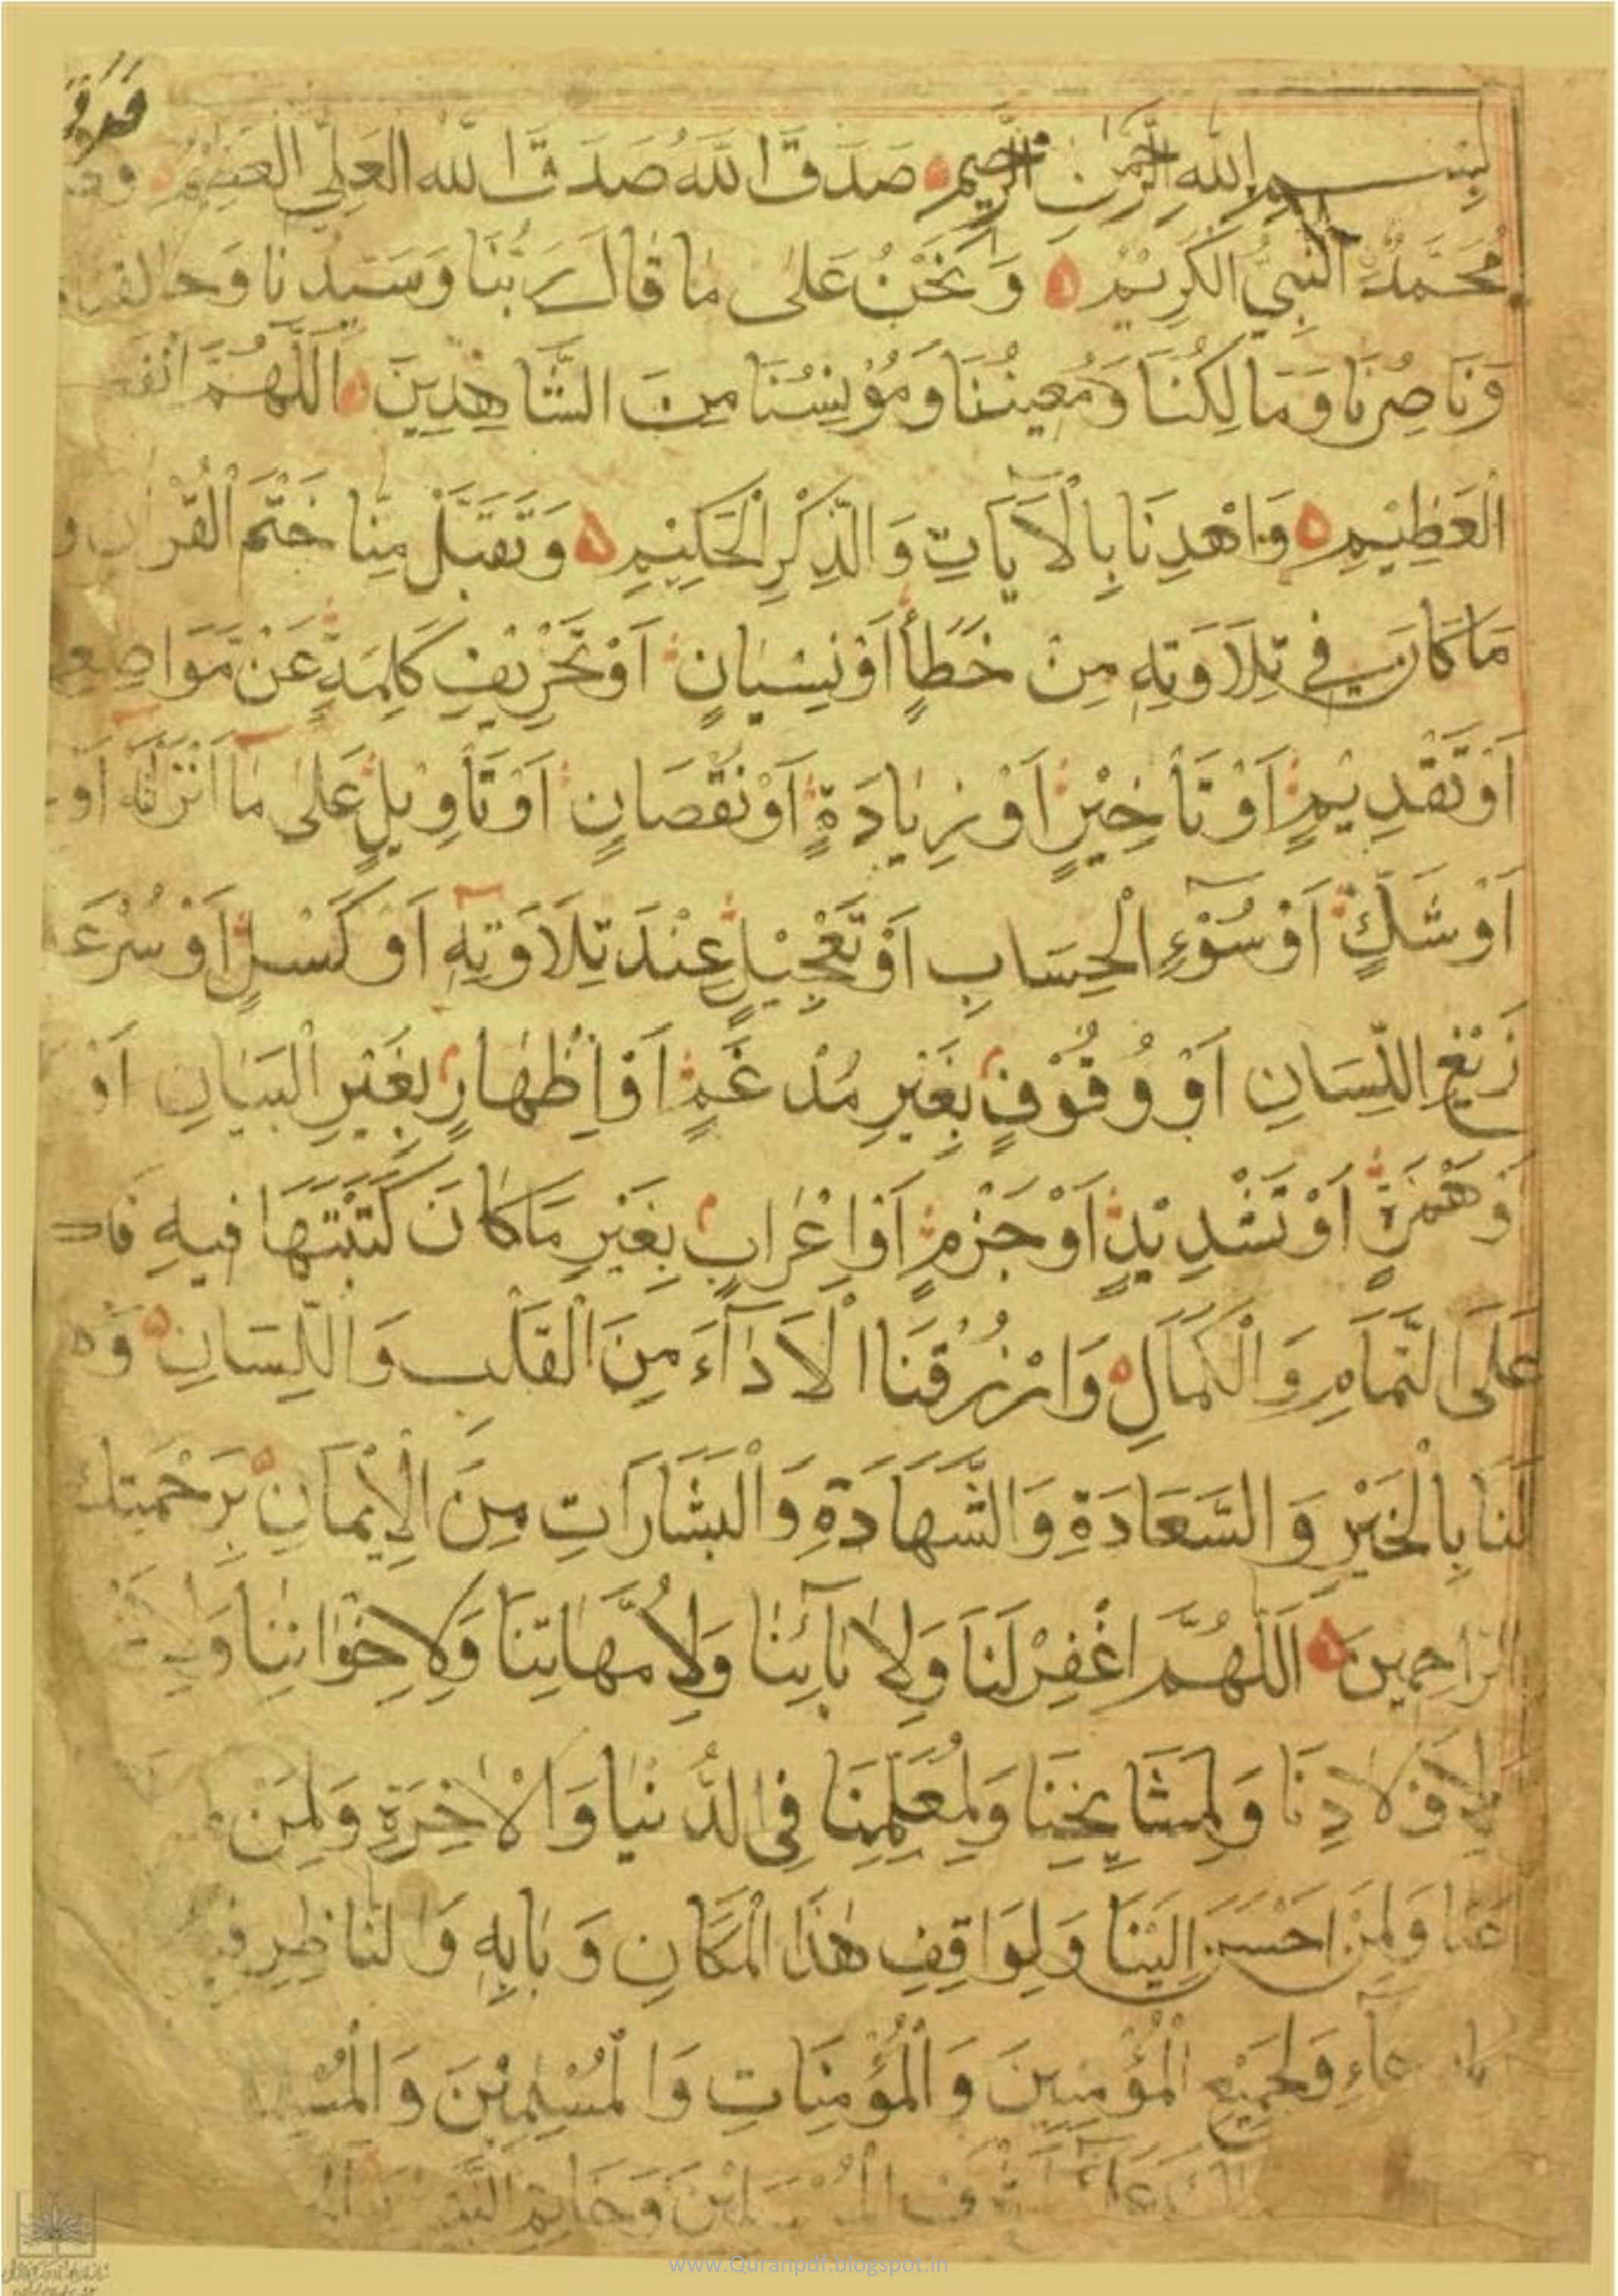 بِسْمِ اللهِ الرَّحْمٰنِ الرَّحِيمِ صَدَقَ اللهُ صَدَقَ اللهُ الْعَلِيُّ الْعَظِيْمُ
مُحَمَّدٌ النَّبِيُّ الْكَرِيْمُ وَنَحْنُ عَلىٰ مَا قَالَ رَبُّنَا وَسَيِّدُنَا وَخَالِقُنَا
وَنَاصِرُنَا وَمَالِكُنَا وَمُعِينُنَا وَمُؤْنِسُنَا مِنَ الشَّاهِدِينَ اَللّٰهُمَّ
الْعَظِيْمِ وَاهْدِنَا بِالْاٰيَاتِ وَالذِّكْرِ الْحَكِيْمِ وَتَقَبَّلْ مِنَّا خَتْمَ الْقُرْاٰنِ
مَا كَانَ فِي تِلَاوَتِهِ مِنْ خَطَأٍ اَوْ نِسْيَانٍ اَوْ تَحْرِيْفِ كَلِمَةٍ عَنْ مَوَاضِعِ
اَوْ تَقْدِيْمٍ اَوْ تَأْخِيْرٍ اَوْ زِيَادَةٍ اَوْ نُقْصَانٍ اَوْ تَأْوِيْلٍ عَلىٰ مَا اَنْزَلْتَهُ اَوْ
اَوْ شَكٍّ اَوْ سُوْءِ الْحِسَابِ اَوْ تَعْجِيْلٍ عِنْدَ تِلَاوَتِهِ اَوْ كَسْلٍ اَوْ سُرْعَ
زَيْغِ اللِّسَانِ اَوْ وُقُوْفٍ بِغَيْرِ مُدْغَمٍ اَوْ اِظْهَارٍ بِغَيْرِ الْبَيَانِ اَوْ
وَهَمْزَةٍ اَوْ تَشْدِيْدٍ اَوْ جَزْمٍ اَوْ اِعْرَابٍ بِغَيْرِ مَا كَانَ كَتَبْتَهَا فِيهِ
عَلَى التَّمَامِ وَالْكَمَالِ وَارْزُقْنَا الْاَدَاءَ مِنَ الْقَلْبِ وَاللِّسَانِ
لَنَا بِالْخَيْرِ وَالسَّعَادَةِ وَالشَّهَادَةِ وَالْبَشَارَاتِ مِنَ الْاِيْمَانِ بِرَحْمَتِكَ
الرَّاحِمِيْنَ اَللّٰهُمَّ اغْفِرْ لَنَا وَلِاٰبَائِنَا وَلِاُمَّهَاتِنَا وَلِاِخْوَانِنَا
وَلِاَوْلَادِنَا وَلِمَشَايِخِنَا وَلِمُعَلِّمِنَا فِي الدُّنْيَا وَالْاٰخِرَةِ وَلِمَنْ
عَنَّا وَلِمَنْ اَحْسَنَ اِلَيْنَا وَلِوَاقِفِ هٰذَا الْمَكَانِ وَبَابِهِ وَالنَّاظِرِ
وَلِجَمِيْعِ الْمُؤْمِنِينَ وَالْمُؤْمِنَاتِ وَالْمُسْلِمِيْنَ
وَخَاتَمِ
www.Quranpdf.blogspot.in